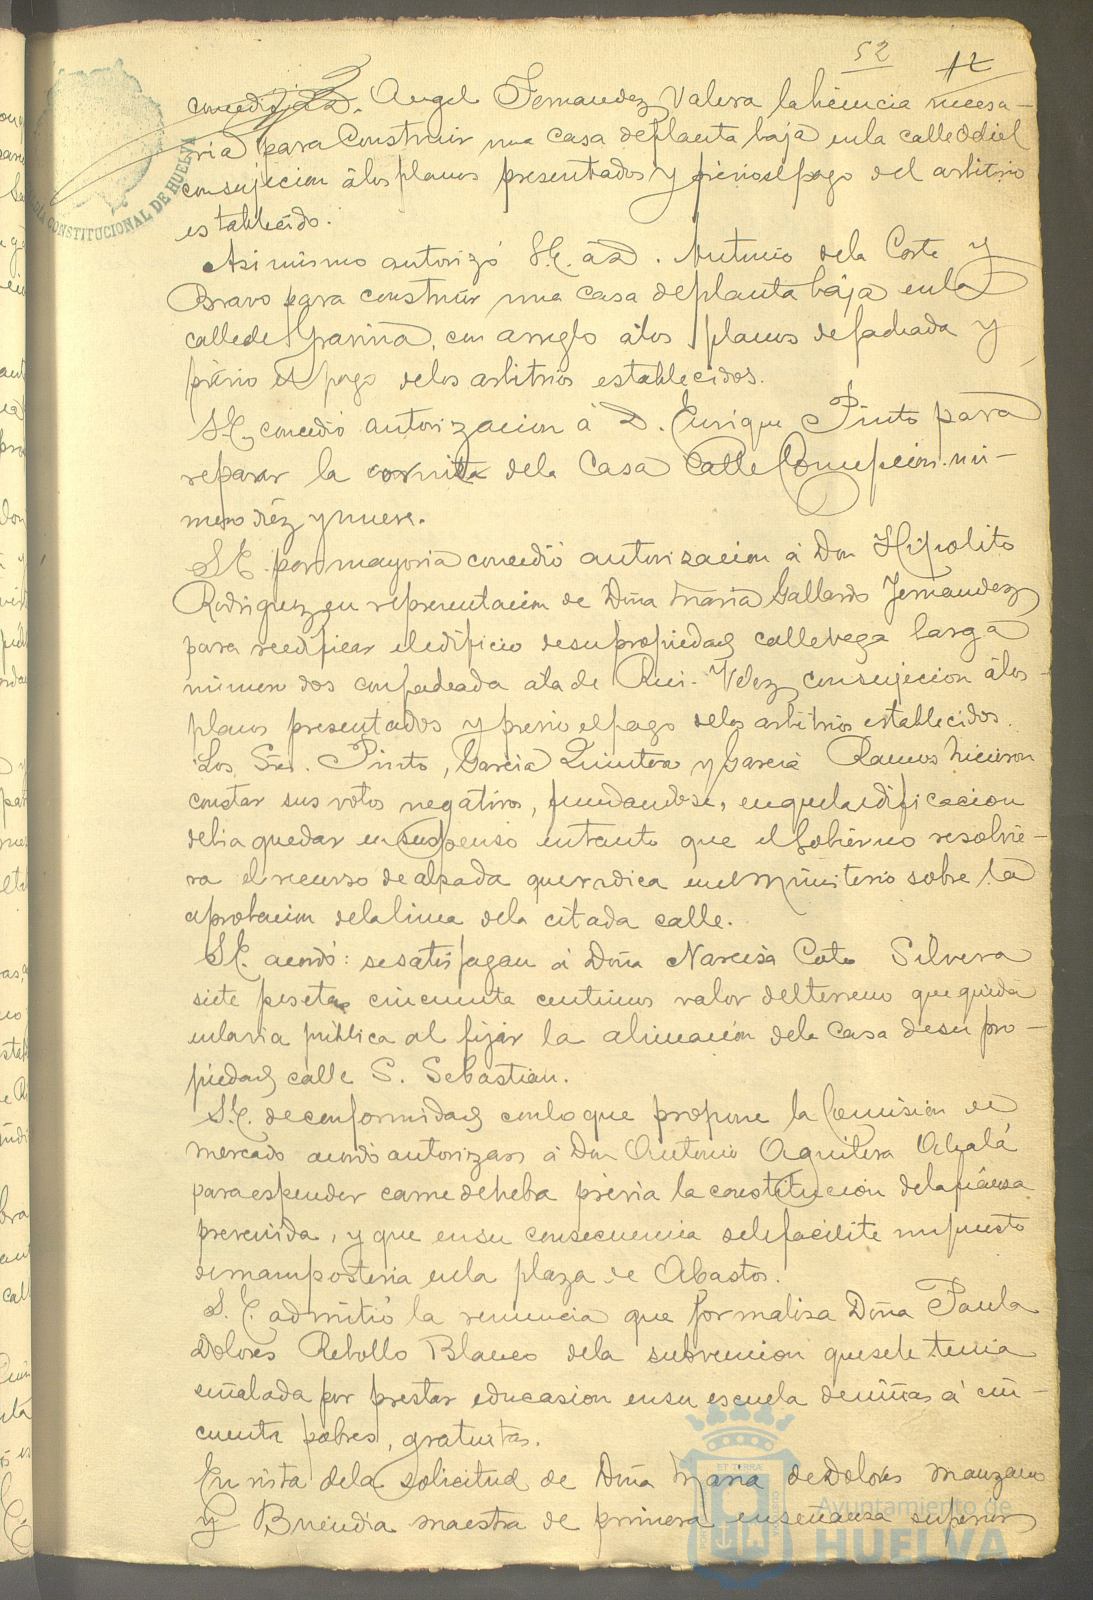 52 12
concedio á D. Angel Fernandez Valera la licencia necesa-
ria para construir una casa de planta baja en la calle Odiel
con sujecion á los planos presentados y previo el pago del arbitrio
establecido.
Asimismo autorizó S.E. á D. Antonio de la Corte y
Bravo para construir una casa de planta baja en la
calle de Gravina, con arreglo á los planos de fachada y
prévio el pago de los arbitrios establecidos.
S.E. concedió autorizacion á D. Enrique Pinto para
reparar la cornisa de la Casa Calle Concepcion nú-
mero diéz y nueve.
S.E. por mayoria concedió autorizacion á Don Hipolito
Rodriguez en representacion de Doña Maria Gallardo Fernandez
para reedificar el edificio de su propiedad calle Vega Larga
número dos con fachada a la de Rui-Velez con sujecion á los
planos presentados y previo el pago de los arbitrios establecidos.
Los Sres. Pinto, Garcia Quintero y Garcia Ramos hicieron
constar sus votos negativos, fundandose, en que la edificacion
debia quedar en suspenso entanto que el Gobierno resolvie-
ra el recurso de alzada que radica en el Ministerio sobre la
aprobacion de la linea de la citada calle.
S.E. acordó: se satisfagan á Doña Narcisa Coto Silvera
siete pesetas cincuenta centimos valor del terreno que queda
en la via pública al fijár la alineación de la Casa de su pro-
piedad calle S. Sebastian.
S.E. de conformidad con lo que propone la Comision de
mercado acordó autorizar á Don Antonio Aguilera Alcalá
para espender carne de heba prévia la constitucion de la fianza
prevenida, y que en su consecuencia se le facilite un puesto
de mamposteria en la plaza de Abastos.
S.E. admitió la renuncia que formaliza Doña Paula
Dolores Rebollo Blanco de la subvencion que se le tenia
señalada por prestar educasion en su escuela de niñas á cin-
cuenta pobres, gratuitas.
En vista de la solicitud de Doña Maria de Dolores Manzano
y Buendia maestra de primera enseñanza superior
CONSTITUCIONAL DE HUELVA
Ayuntamiento de
HUELVA